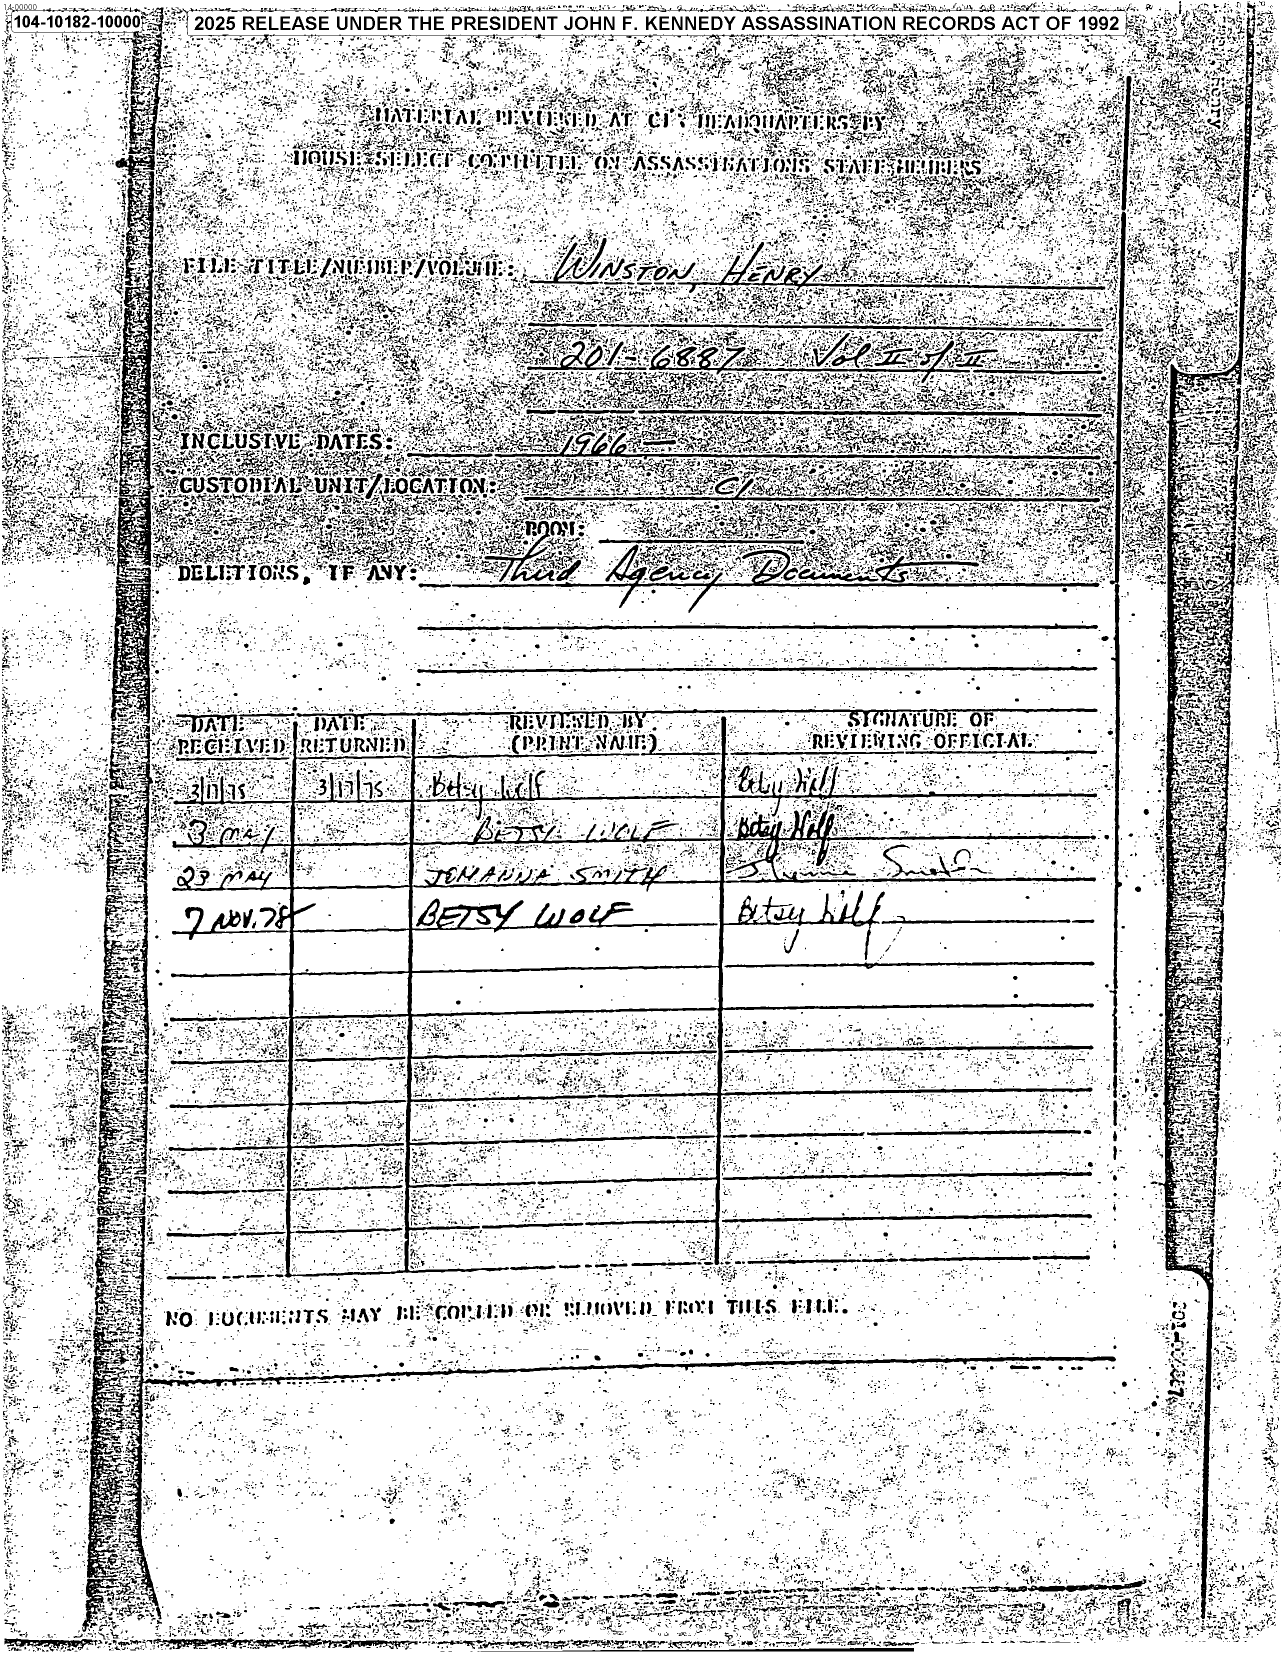 14-00000
104-10182-10000
2025 RELEASE UNDER THE PRESIDENT JOHN F. KENNEDY ASSASSINATION RECORDS ACT OF 1992
MATERIAL REVIEWED AT CIA HEADQUARTERS BY
HOUSE SELECT COMMITTEE ON ASSASSINATIONS STAFF MEMBERS
FILE TITLE/NUMBER/VOLUME: WINSTON, HENRY
201-6887 Vol II of II
INCLUSIVE DATES: 1966 —
CUSTODIAL UNIT/LOCATION: CI
ROOM:
DELETIONS, IF ANY: Third Agency Documents
DATE RECEIVED DATE RETURNED REVIEWED BY (PRINT NAME) SIGNATURE OF REVIEWING OFFICIAL
3/17/75 3/17/75 Betsy Wolf Betsy Wolf
3 MAY BETSY WOLF Betsy Wolf
23 MAY JOHANNA SMITH Johanna Smith
7 NOV. 78 BETSY WOLF Betsy Wolf
NO DOCUMENTS MAY BE COPIED OR REMOVED FROM THIS FILE.